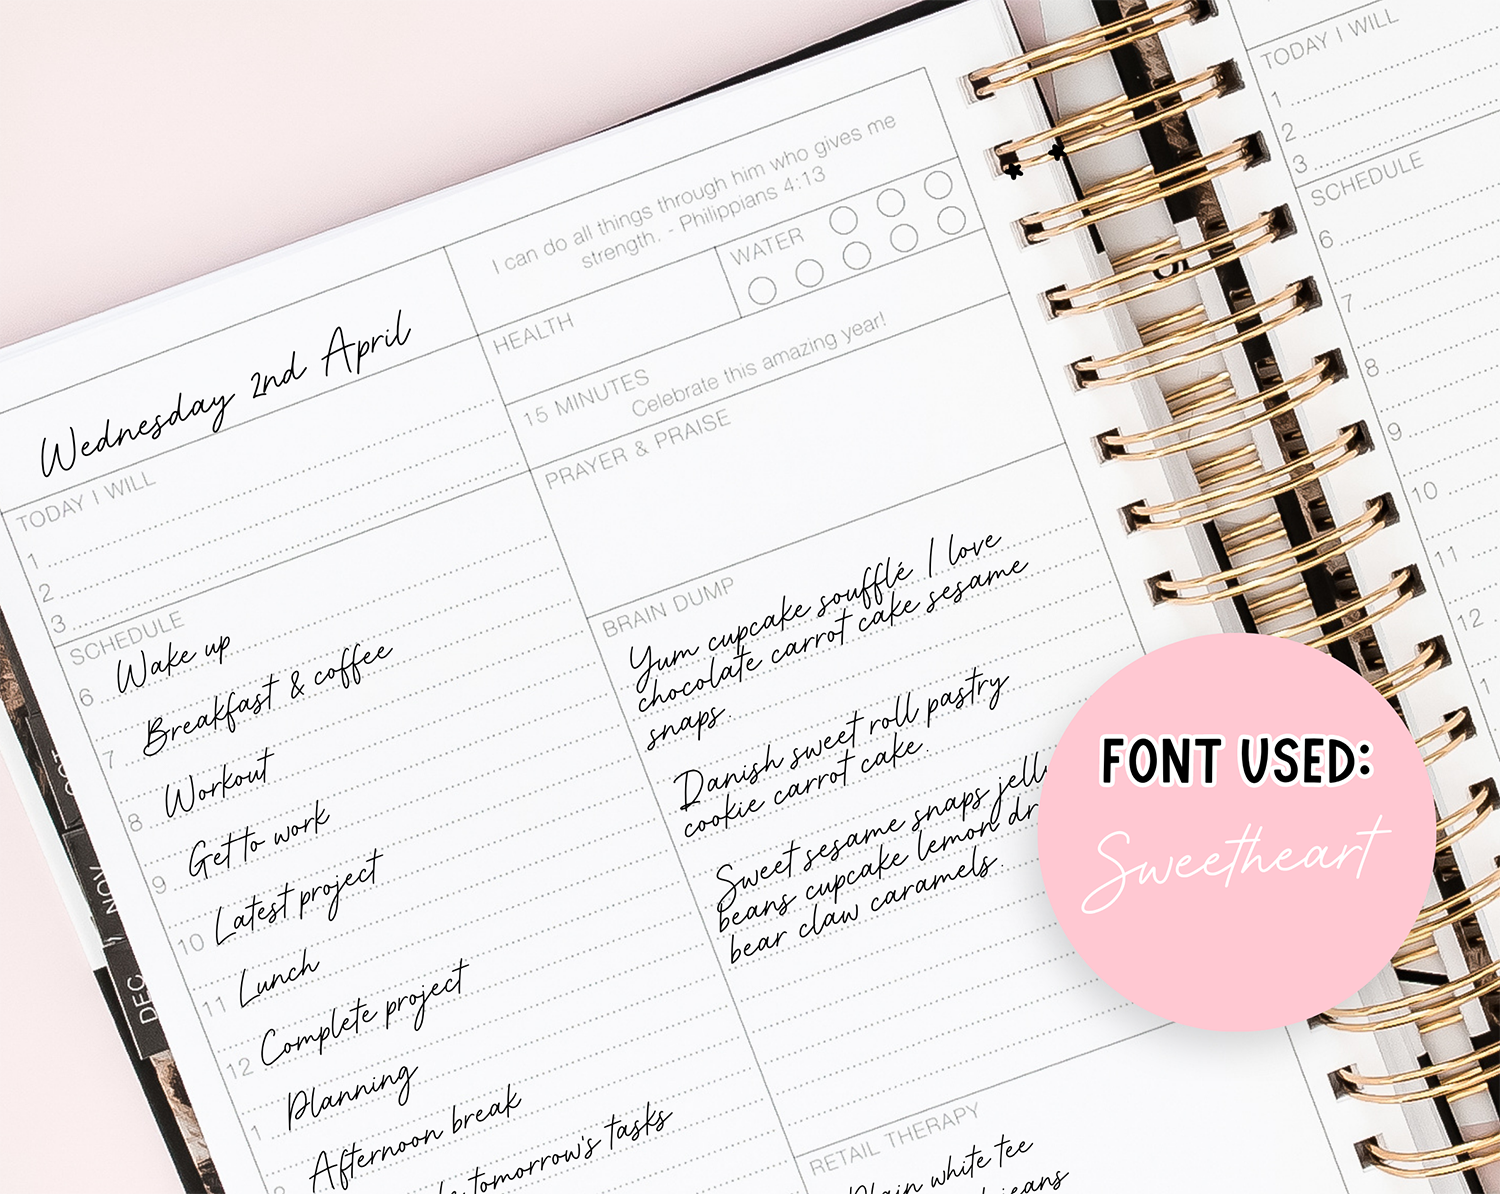 Wednesday 2nd April
I can do all things through him who gives me
strength. - Philippians 4:13
HEALTH
WATER
15 MINUTES
Celebrate this amazing year!
PRAYER & PRAISE
TODAY I WILL
1
2
3
SCHEDULE
6 Wake up
Breakfast & coffee
7
Workout
8
Get to work
9
Latest project
10
Lunch
11
Complete project
12
Planning
1
Afternoon break
tomorrow's tasks
BRAIN DUMP
Yum cupcake soufflé I love
chocolate carrot cake sesame
snaps.
Danish sweet roll pastry
cookie carrot cake.
Sweet sesame snaps jelly
beans cupcake lemon
bear claw caramels.
RETAIL THERAPY
Plain white tee
jeans
OCT
NOV
DEC
TODAY I WILL
1
2
3
SCHEDULE
6
7
8
9
10
11
12
1
FONT USED:
Sweetheart